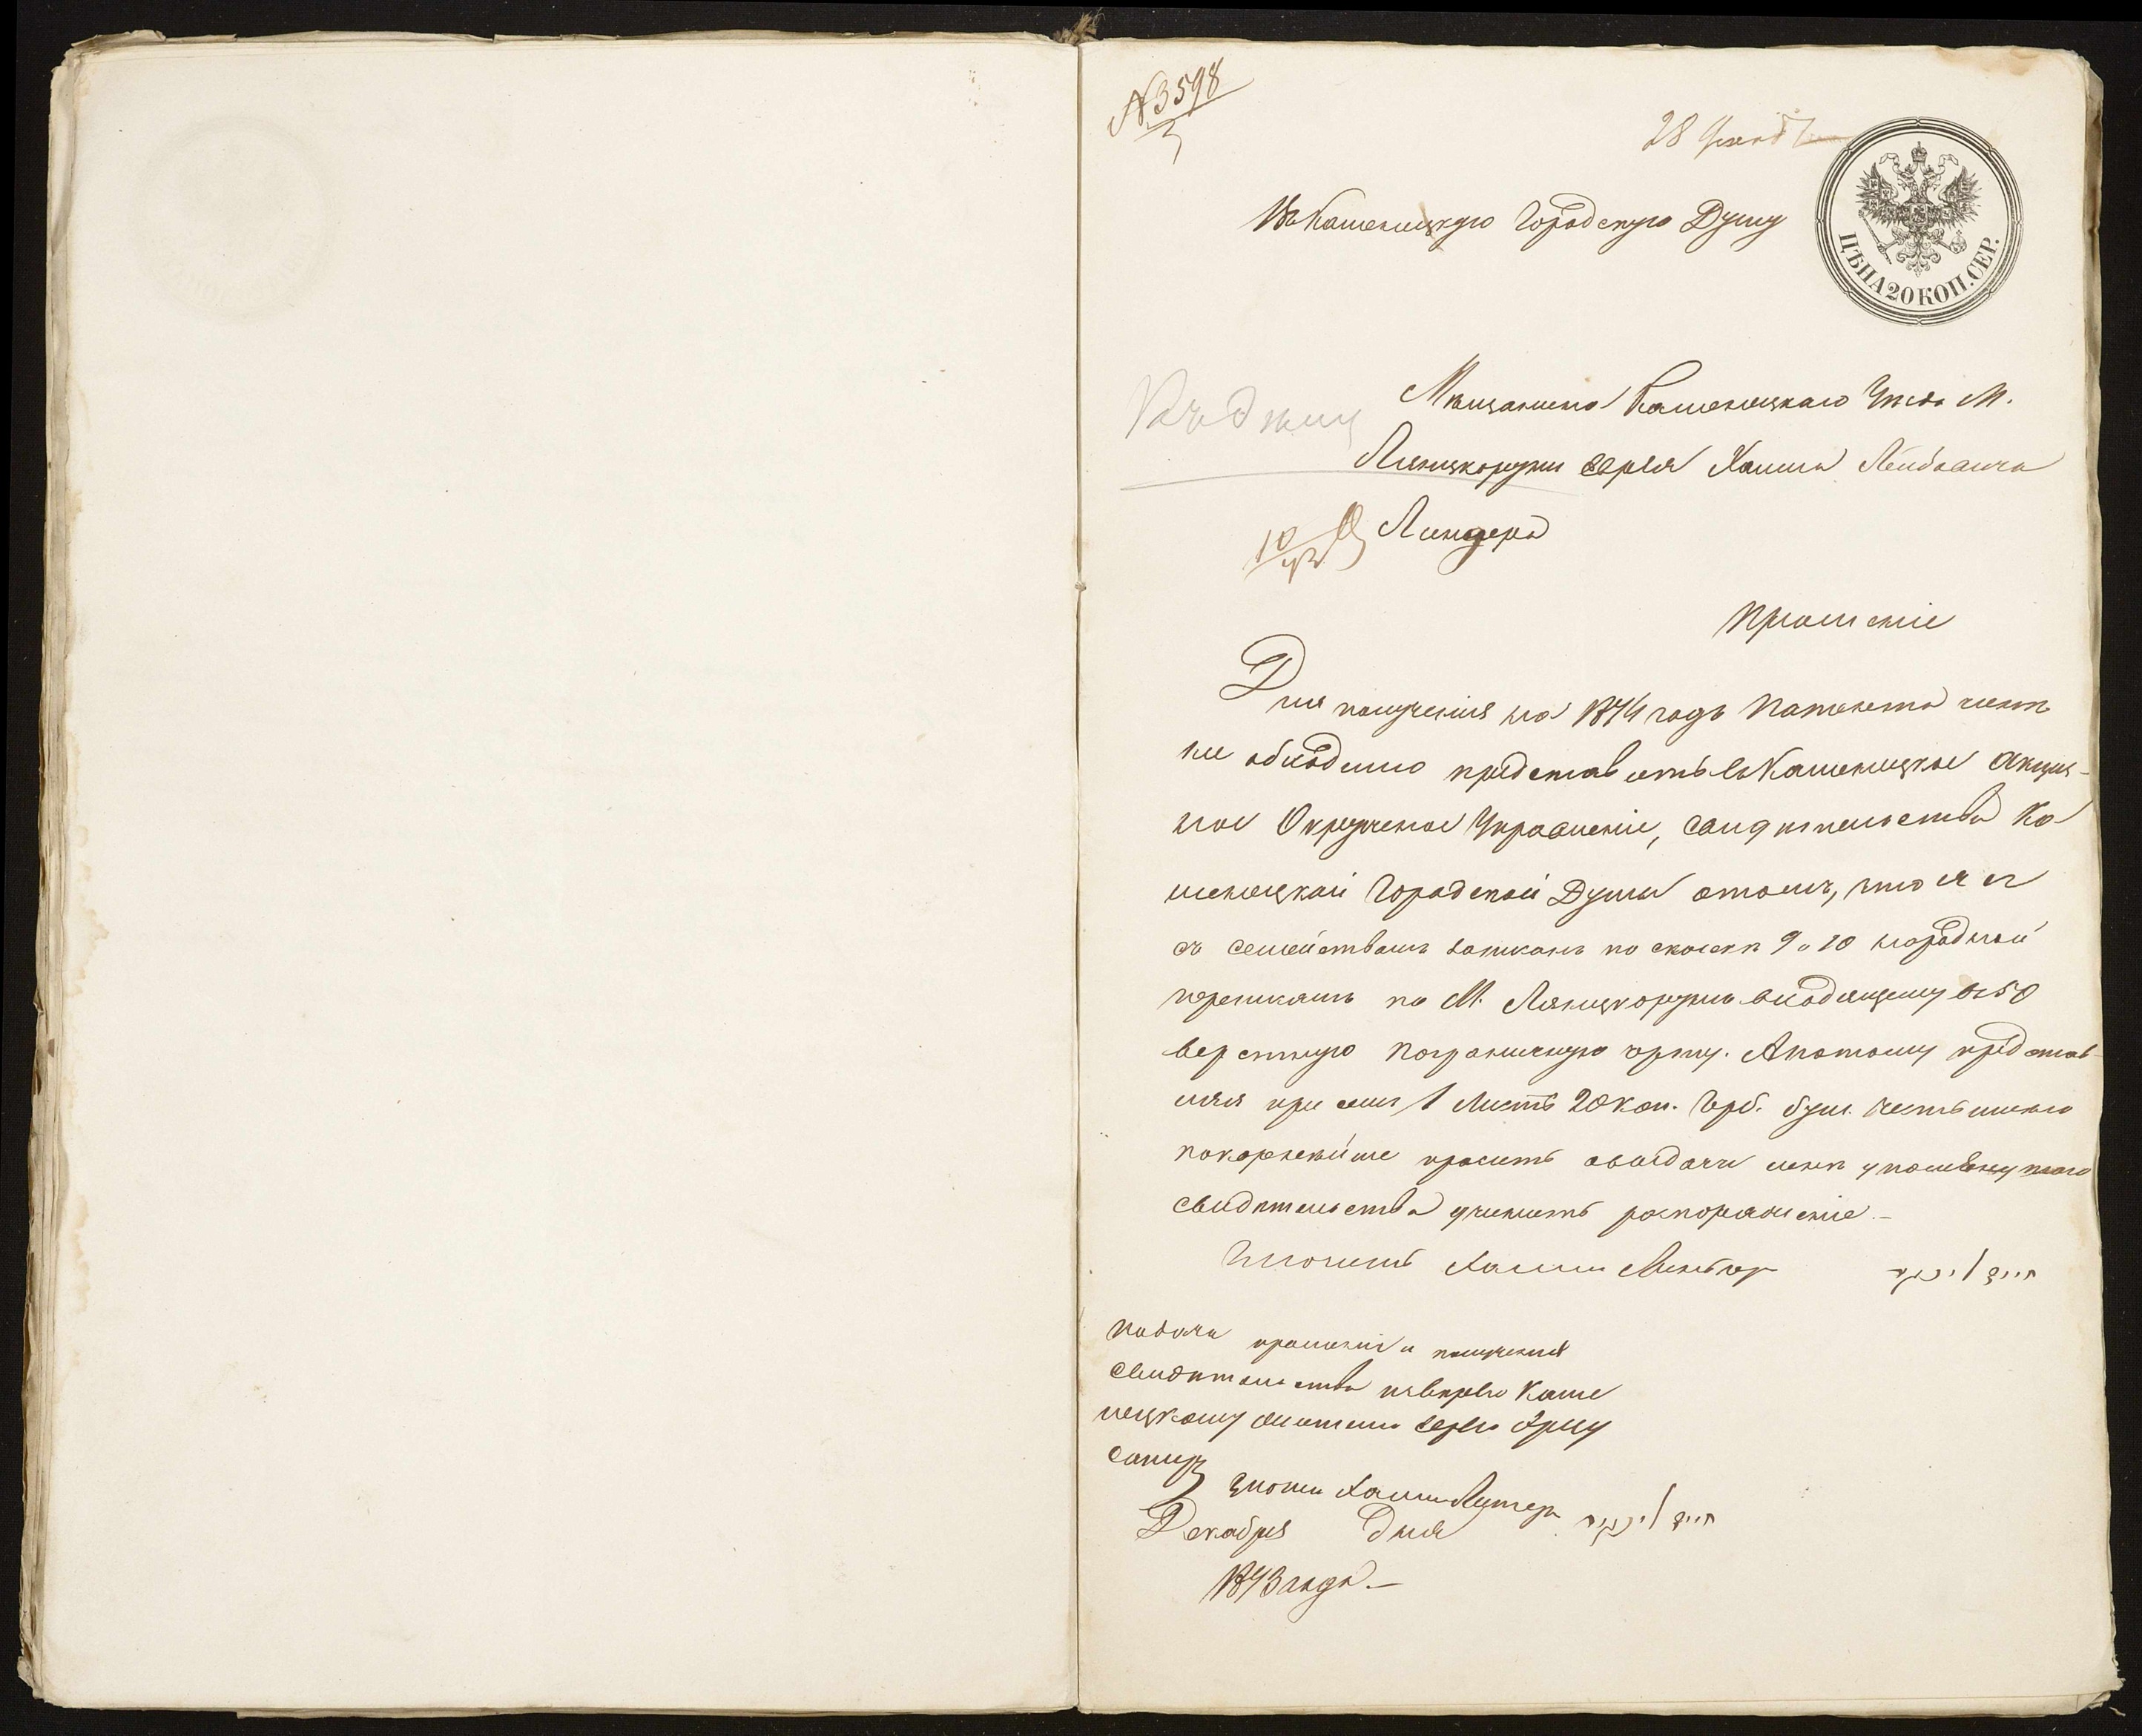 № 3598
28 Декаб
Въ Каменецкую Городскую Думу
ЦѢНА 20 КОП. СЕР.
Мѣщанина Каменецкаго Уѣзда М.
Лянцкоруни еврея Хаима Лейбовича
Линдера
10
Прошеніе
Для полученія на 1874 годъ патента мнѣ
необходимо представить въ Каменецкое Акциз-
ное Окружное Управленіе, свидѣтельство Ка
менецкой Городской Думы отомъ, что я
съ семействомъ записанъ по сказкѣ 9 и 10 народной
переписямъ по М. Лянцкорунь входящему въ 50
верстную пограничную черту. А потому представ
ляя при семъ 1 листъ 20 коп. Герб. бум. честь имѣю
покорнѣйше просить о выдачи мнѣ упомянутаго
свидѣтельства учинить распоряженіе.—
Хаимъ Линдер חיים לינדער
Подачи прошенія и полученія
свидѣтельства ввѣряю Каме
нецкому мѣщанину еврею
Хаимъ חיים לינדער
Декабря дня
1873 года.—